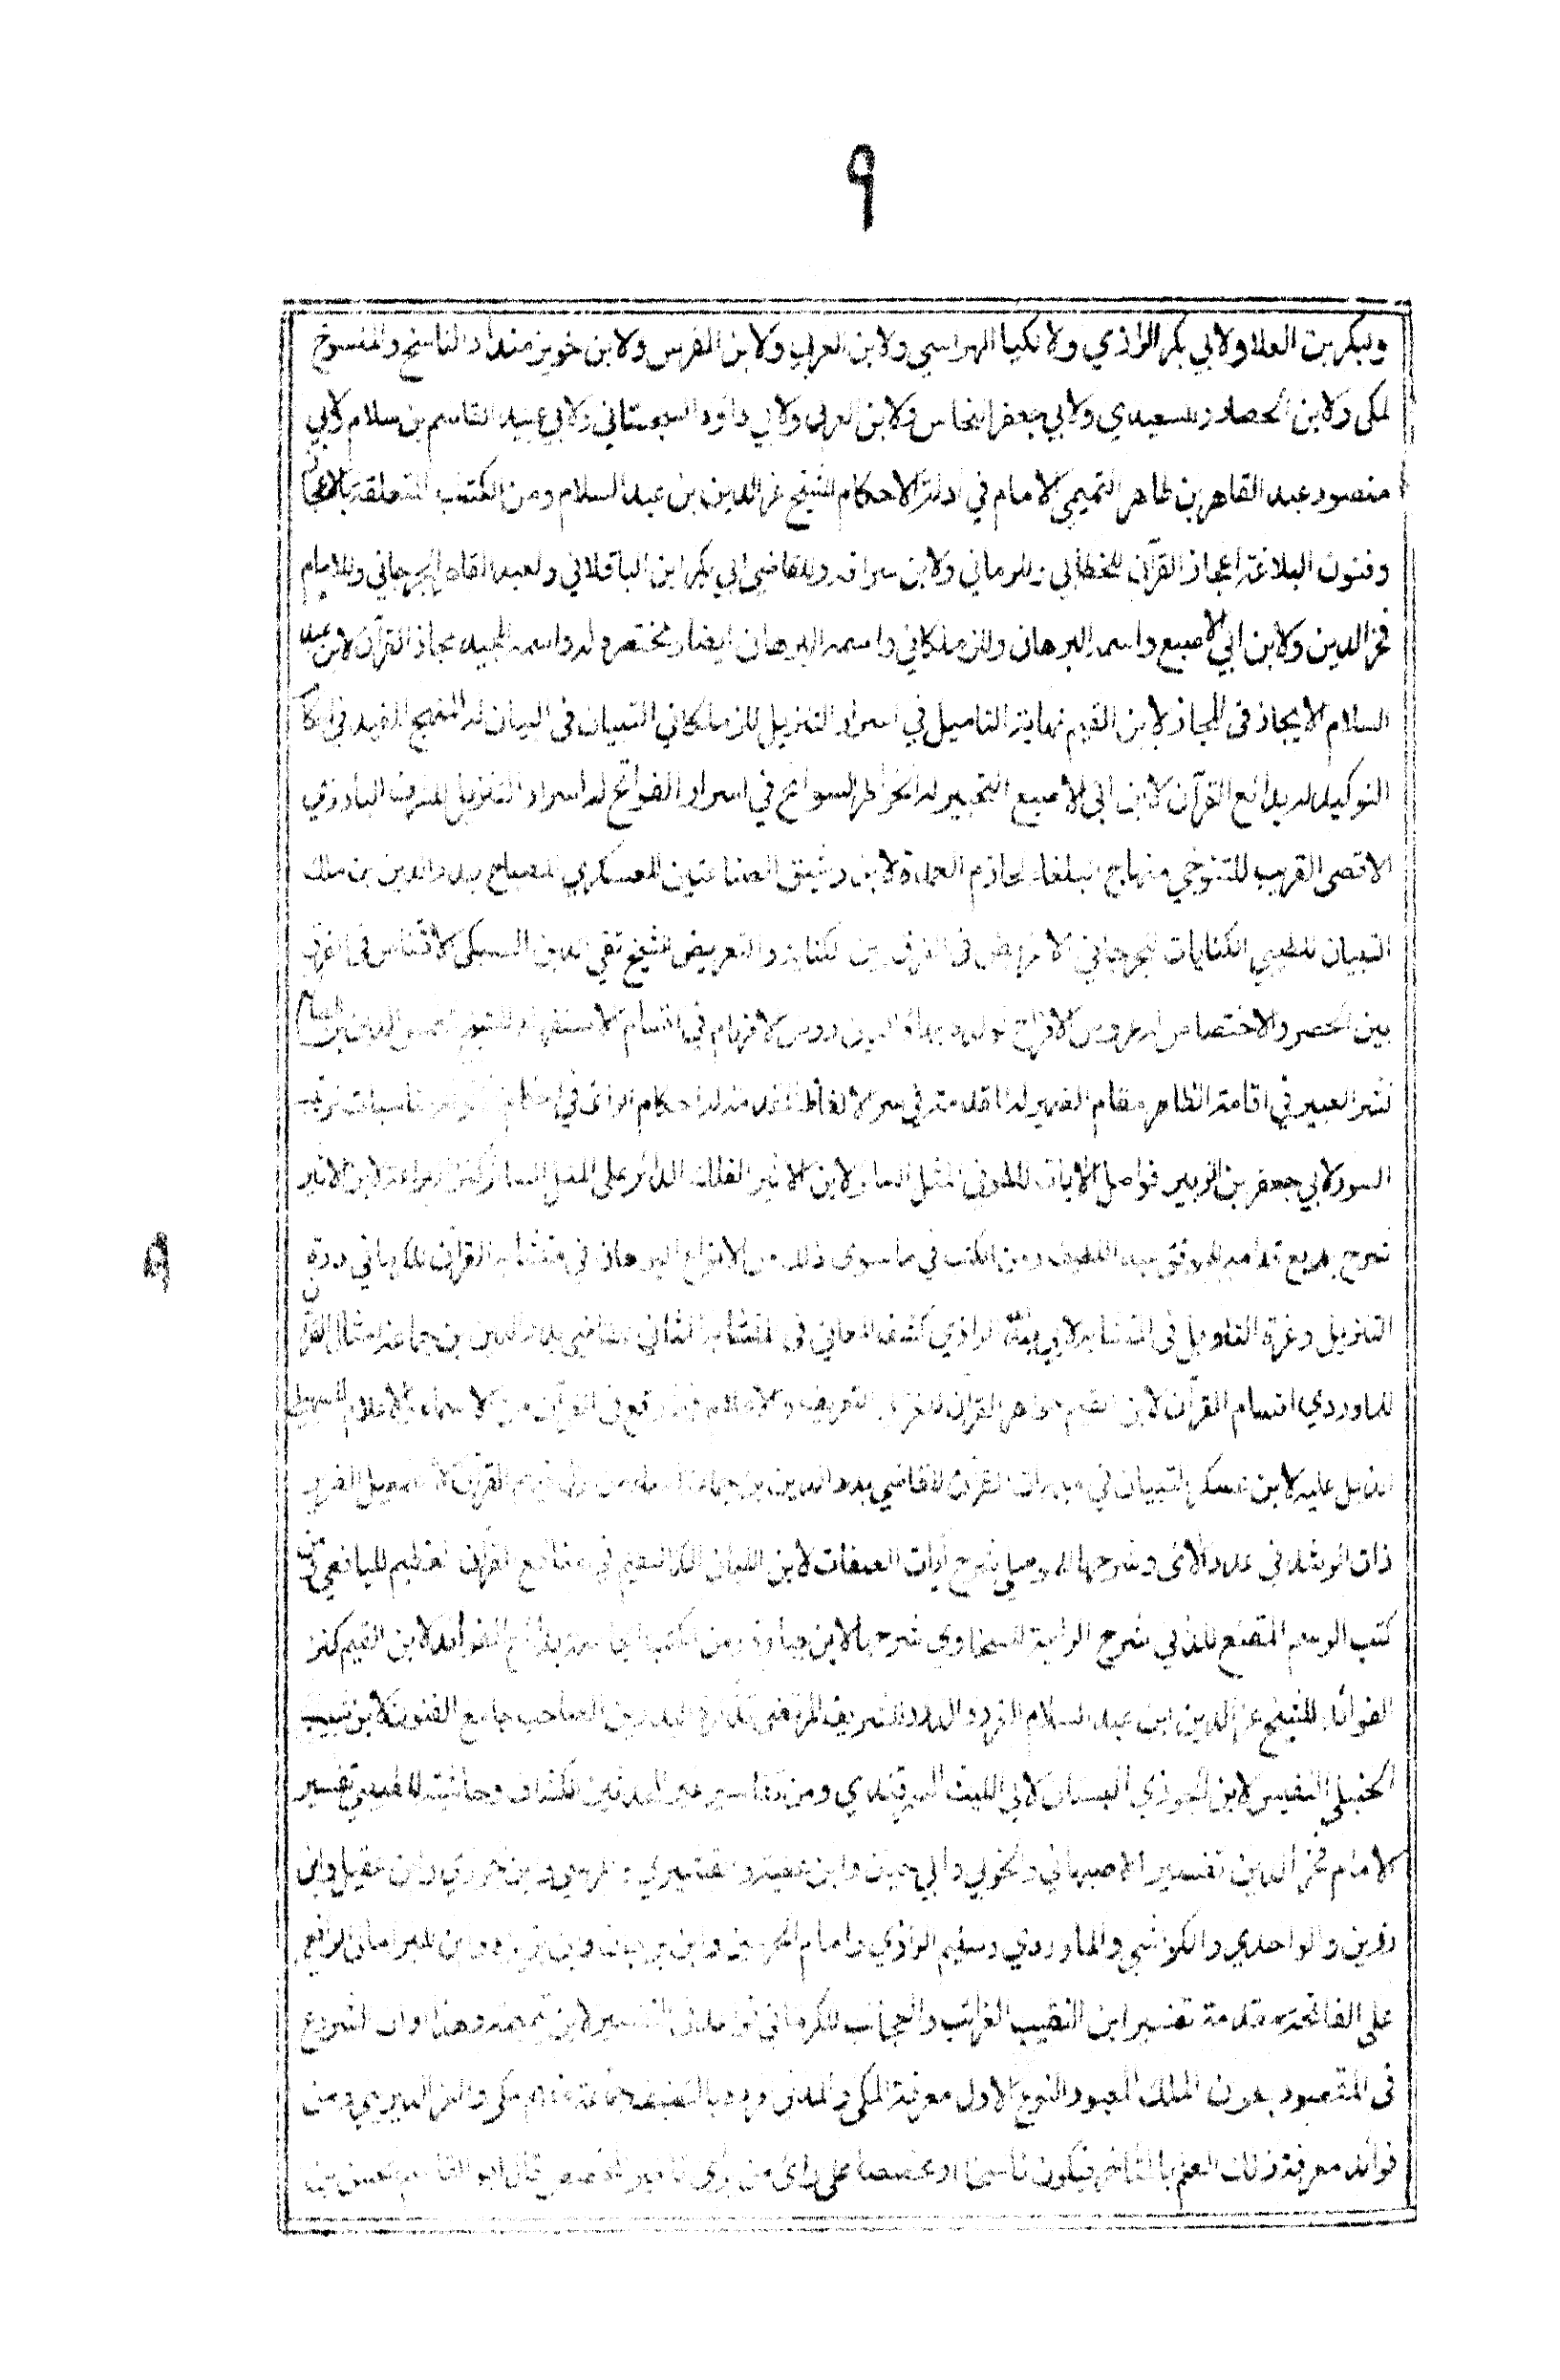 ٩
ولبكر بن العلا ولابي بكر الرازي ولالكيا الهراسي ولابن العربي ولابن الفرس ولابن خويز منداد الناسخ والمنسوخ
لمكى ولابن الحصار وللسعيدي ولابي جعفر النحاس ولابن العربى ولابي داود السجستانى ولابي عبيد القاسم بن سلام ولابي
منصور عبد القاهر بن طاهر التميمى الامام في ادلة الاحكام للشيخ عز الدين بن عبد السلام ومن الكتب المتعلقة بالاعجاز
وفنون البلاغة اعجاز القرآن للخطابي وللرماني ولابن سراقه وللقاضي ابي بكر ابن الباقلاني ولعبد القاهر الجرجاني وللامام
فخر الدين ولابن ابي الاصبع واسمه البرهان وللزملكاني واسمه البرهان ايضا ومختصره له واسمه المجيد مجاز القرآن لابن عبد
السلام الايجاز فى المجاز لابن القيم نهاية التاميل في اسرار التنزيل للزملكاني التبيان فى البيان له المنهج المفيد في احكام
التوكيد له بدائع القرآن لابن ابى الاصبع التحبير له الخواطر السوانح في اسرار الفواتح له اسرار التنزيل للشرف البارزي
الاقصى القريب للتنوخي منهاج البلغاء لحازم العمدة لابن رشيق الصناعتين للعسكري المصباح لبدر الدين بن ملك
التبيان للطيبي الكنايات للجرجاني الاغريض فى الفرق بين الكناية والتعريض للشيخ تقي الدين السبكى الاقتناص فى الفرق
بين الحصر والاختصاص له عروس الافراح لولده بهاء الدين روض الافهام في اقسام الاستفهام للشيخ شمس الدين بن الصائغ
نشر العبير في اقامة الظاهر مقام الضمير له المقدمة في سر الالفاظ المقدمة له احكام الراى في احكام الآى له مناسبات ترتيب
السور لابي جعفر بن الزبير فواصل الايات للطوفى المثل السائر لابن الاثير الفلك الدائر على المثل السائر كنز البراعة لابن الاثير
شرح بديع قدامه للموفق عبد اللطيف ومن الكتب في ما سوى ذلك من الانواع البرهان فى متشابه القرآن للكرماني درة
التنزيل وغرة التاويل فى المتشابه لابي عبد الله الرازي كشف المعاني فى المتشابه المثاني للقاضي بدر الدين بن جماعة امثال القرآن
للماوردي اقسام القرآن لابن القيم جواهر القرآن للغزالي التعريف والاعلام فيما وقع فى القرآن من الاسماء والاعلام للسهيلى
الذيل عليه لابن عسكر التبيان في مبهمات القرآن للقاضي بدر الدين بن جماعة اسماء من نزل فيهم القرآن لاسمعيل الضرير
ذات الرشد في عدد الآى وشرحها للموصلى شرح آيات الصفات لابن اللبان الدر النظيم في منافع القرآن العظيم لليافعي ومن
كتب الرسم المقنع للدانى شرح الرائية للسخاوي شرحها لابن جبارة ومن الكتب الجامعة بدائع الفوائد لابن القيم كنز
الفوائد للشيخ عز الدين ابن عبد السلام الغرر والدرر للشريف المرتضى تذكرة البدر بن الصاحب جامع الفنون لابن شبيب
الحنبلي النفيس لابن الجوزي البستان لابي الليث السمرقندي ومن تفاسير غير المحدثين الكشاف وحاشيته للطيبي تفسير
الامام فخر الدين تفسير الاصبهاني والحوفي وابي حيان وابن عطية والقشيري والمرسي وابن الجوزي وابن عقيل وابن
رزين والواحدي والكواشي والماوردي وسليم الرازي وامام الحرمين وابن برجان وابن بزيزه وابن المنير امالى الرافعي
على الفاتحة مقدمة تفسير ابن النقيب الغرائب والعجائب للكرماني قواعد فى التفسير لابن تيمية وهذا اوان الشروع
فى المقصود بعون الملك المعبود النوع الاول معرفة المكى والمدني افرده بالتصنيف جماعة منهم مكى والعز الديريني ومن
فوائد معرفة ذلك العلم بالمتاخر فيكون ناسخا او مخصصا على راى من يرى تاخير المخصص قال ابو القاسم الحسن بن
٩